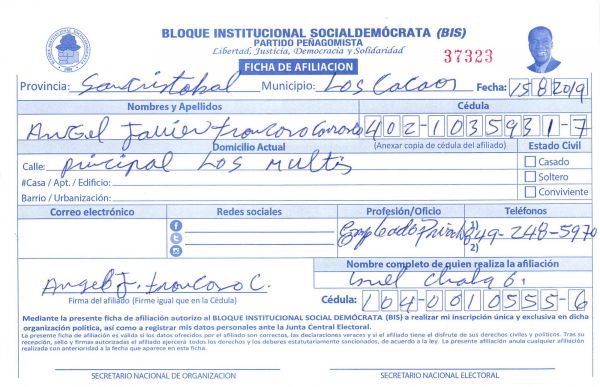 BLOQUE INSTITUCIONAL SOCIALDEMÓCRATA (BIS)
PARTIDO PEÑAGOMISTA
Libertad, Justicia, Democracia y Solidaridad
37323
FICHA DE AFILIACION
Provincia: San Cristobal Municipio: Los Cacaos Fecha: 15 8 2019
Nombres y Apellidos Cédula
Angel Javier Troncoso 402-1035931-7
Domicilio Actual (Anexar copia de cédula del afiliado) Estado Civil
Calle: principal Los Multis Casado
#Casa / Apt. / Edificio: Soltero
Barrio / Urbanización: Conviviente
Correo electrónico Redes sociales Profesión/Oficio Teléfonos
Empleado Privado 1) 849-248-5970
2)
Nombre completo de quien realiza la afiliación
Angel J. Troncoso C.
Firma del afiliado (Firme igual que en la Cédula) Cédula: 104-0010555-6
Mediante la presente ficha de afiliación autorizo al BLOQUE INSTITUCIONAL SOCIAL DEMÓCRATA (BIS) a realizar mi inscripción única y exclusiva en dicha
organización política, así como a registrar mis datos personales ante la Junta Central Electoral.
La presente ficha de afiliación es válida si los datos ofrecidos por el afiliado son correctos, las declaraciones veraces y el afiliado tiene el disfrute de sus derechos civiles y políticos. Tras su
recepción, sello y firmas autorizadas el afiliado ejercerá todos los derechos y los deberes estatutariamente sancionados, de acuerdo a la ley. La presente afiliación anula cualquier afiliación
realizada con anterioridad a la fecha que aparece en esta ficha.
SECRETARIO NACIONAL DE ORGANIZACIÓN SECRETARIO NACIONAL ELECTORAL